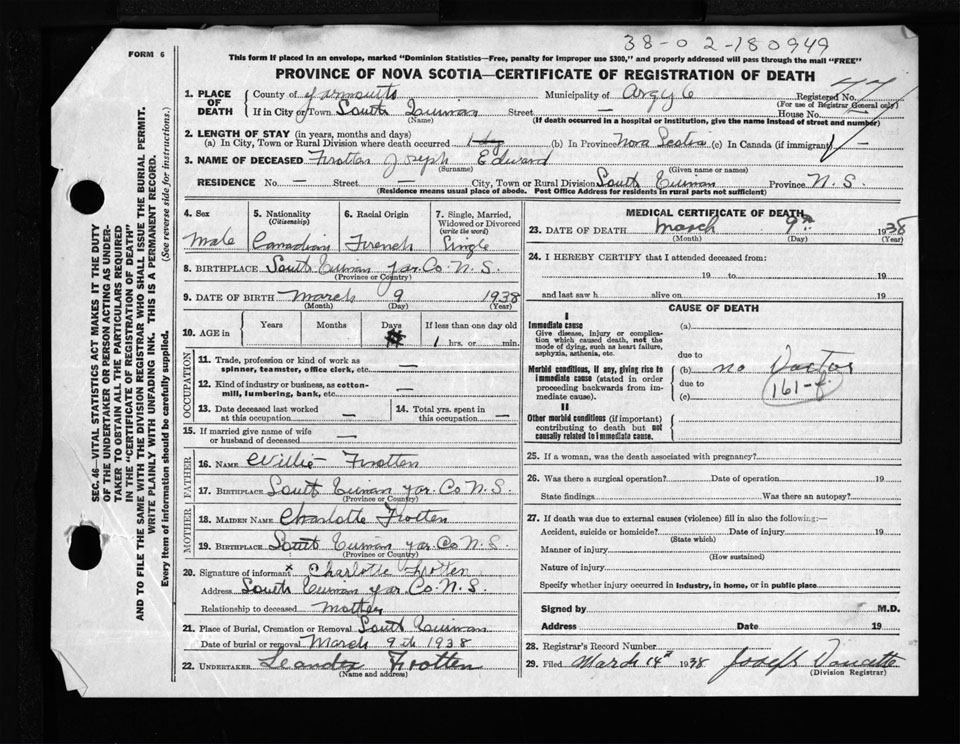 38-02-180949
FORM 6
This form if placed in an envelope, marked "Dominion Statistics—Free, penalty for improper use $300," and properly addressed will pass through the mail "FREE"
PROVINCE OF NOVA SCOTIA—CERTIFICATE OF REGISTRATION OF DEATH
SEC. 46—VITAL STATISTICS ACT MAKES IT THE DUTY
OF THE UNDERTAKER OR PERSON ACTING AS UNDER-
TAKER TO OBTAIN ALL THE PARTICULARS REQUIRED
IN THE "CERTIFICATE OF REGISTRATION OF DEATH"
AND TO FILE THE SAME WITH THE DIVISION REGISTRAR WHO SHALL ISSUE THE BURIAL PERMIT.
WRITE PLAINLY WITH UNFADING INK. THIS IS A PERMANENT RECORD.
Every item of information should be carefully supplied. (See reverse side for instructions.)
1. PLACE OF DEATH County of Yarmouth Municipality of Argyle Registered No.
(For use of Registrar General only)
If in City or Town South Quinan Street — House No.
(Name) (If death occurred in a hospital or institution, give the name instead of street and number)
2. LENGTH OF STAY (in years, months and days)
(a) In City, Town or Rural Division where death occurred 1 day (b) In Province Nova Scotia (c) In Canada (if immigrant) —
3. NAME OF DECEASED Frotten Joseph Edward
(Surname) (Given name or names)
RESIDENCE No. — Street — City, Town or Rural Division South Quinan Province N.S.
(Residence means usual place of abode. Post Office Address for residents in rural parts not sufficient)
4. Sex 5. Nationality (Citizenship) 6. Racial Origin 7. Single, Married, Widowed or Divorced (write the word)
Male Canadian French Single
8. BIRTHPLACE South Quinan Yar. Co. N.S.
(Province or Country)
9. DATE OF BIRTH March 9 1938
(Month) (Day) (Year)
10. AGE in Years Months Days If less than one day old
1 hrs. or min.
OCCUPATION
11. Trade, profession or kind of work as spinner, teamster, office clerk, etc. —
12. Kind of industry or business, as cotton-mill, lumbering, bank, etc. —
13. Date deceased last worked at this occupation — 14. Total yrs. spent in this occupation —
15. If married give name of wife or husband of deceased —
FATHER
16. NAME Willie Frotten
17. BIRTHPLACE South Quinan Yar. Co N.S.
(Province or Country)
MOTHER
18. MAIDEN NAME Charlotte Frotten
19. BIRTHPLACE South Quinan Yar. Co N.S.
(Province or Country)
20. Signature of informant x Charlotte Frotten
Address South Quinan Yar. Co. N.S.
Relationship to deceased Mother
21. Place of Burial, Cremation or Removal South Quinan
Date of burial or removal March 9th 1938
22. UNDERTAKER Leander Frotten
(Name and address)
MEDICAL CERTIFICATE OF DEATH
23. DATE OF DEATH March 9th 1938
(Month) (Day) (Year)
24. I HEREBY CERTIFY that I attended deceased from:
19 to 19
and last saw h alive on 19
CAUSE OF DEATH
I
Immediate cause (a)
Give disease, injury or complication which caused death, not the mode of dying, such as heart failure, asphyxia, asthenia, etc.
due to
Morbid conditions, if any, giving rise to immediate cause (stated in order proceeding backwards from immediate cause). (b) no Doctor
due to 161-f.
(c)
II
Other morbid conditions (if important) contributing to death but not causally related to immediate cause.
25. If a woman, was the death associated with pregnancy?
26. Was there a surgical operation? Date of operation 19
State findings Was there an autopsy?
27. If death was due to external causes (violence) fill in also the following:—
Accident, suicide or homicide? Date of injury 19
(State which)
Manner of injury
(How sustained)
Nature of injury
Specify whether injury occurred in industry, in home, or in public place
Signed by M.D.
Address Date 19
28. Registrar's Record Number
29. Filed March 14th 1938 Joseph
(Division Registrar)